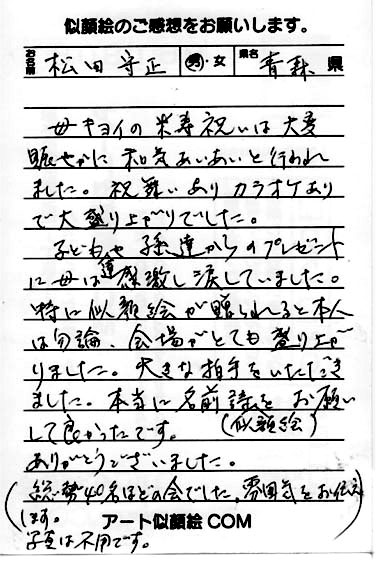 似顔絵のご感想をお願いします。
お名前 松田守正 男・女 県名 青森 県
母キヨイの米寿祝いは大変
賑やかに和気あいあいと行われ
ました。祝舞いありカラオケあり
で大盛り上がりでした。
子どもや孫達からのプレゼント
に母は感激し涙していました。
特に似顔絵が贈られると本人
は勿論、会場がとても盛り上が
りました。大きな拍手をいただき
ました。本当に名前詩をお願い
して良かったです。(似顔絵)
ありがとうございました。
(総勢40名ほどの会でした。雰囲気をお伝え
します。
アート似顔絵COM
写真は不用です。)